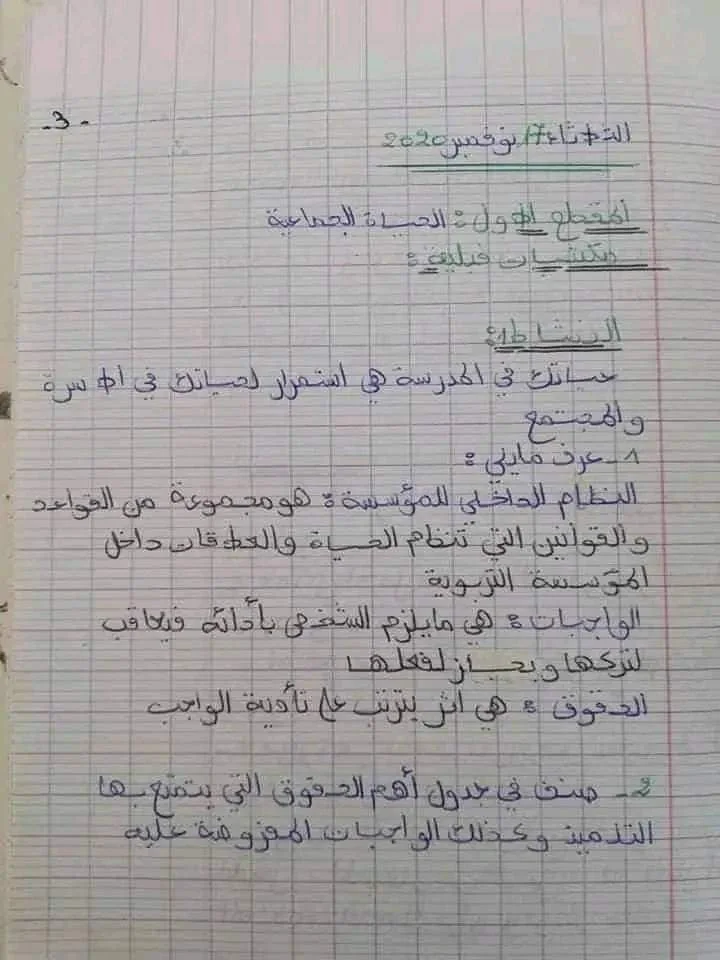 - 3 -
الثلاثاء 17 نوفمبر 2020
المقطع الأول : الحياة الجماعية
مكتسبات قبلية :
النشاط 1 :
حياتك في المدرسة هي استمرار لحياتك في الأسرة
والمجتمع
1 - عرف مايلي :
النظام الداخلي للمؤسسة : هو مجموعة من القواعد
والقوانين التي تنظم الحياة والعلاقات داخل
المؤسسة التربوية
الواجبات : هي مايلزم الشخص بأدائه فيعاقب
لتركها ويجاز لفعلها
الحقوق : هي اثر يترتب على تأدية الواجب
2 - صنف في جدول أهم الحقوق التي يتمتع بها
التلاميذ وكذلك الواجبات المفروضة عليه